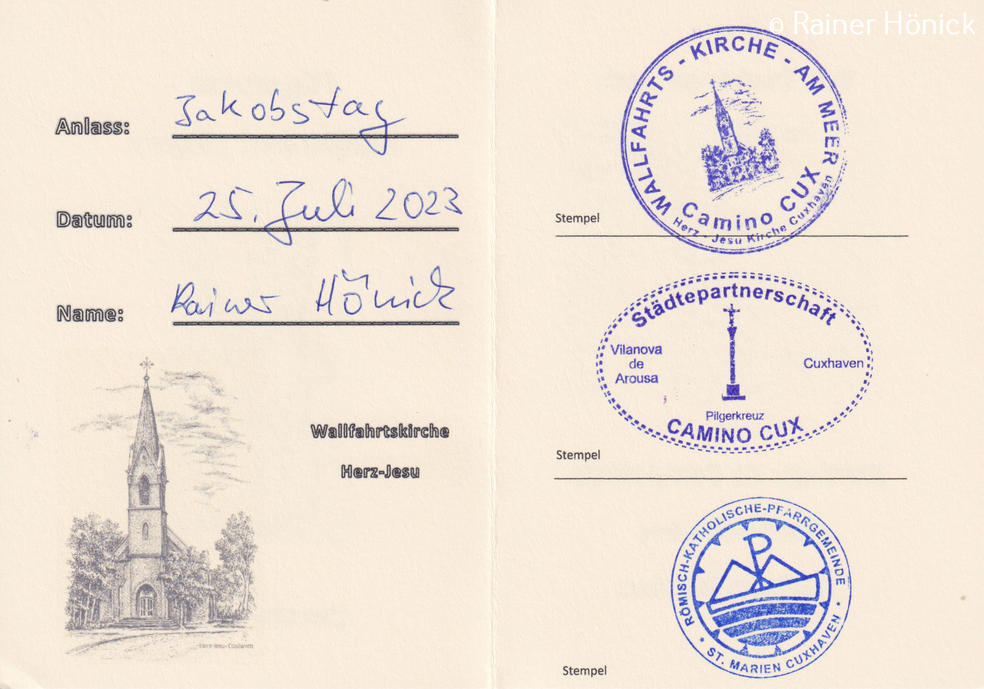 © Rainer Hönick
Anlass: Jakobstag
Datum: 25. Juli 2023
Name: Rainer Hönick
Wallfahrtskirche
Herz-Jesu
Herz-Jesu-Cuxhaven
WALLFAHRTS - KIRCHE - AM MEER
Camino CUX
Herz - Jesu Kirche Cuxhaven
Stempel
Städtepartnerschaft
Vilanova
de
Arousa
Cuxhaven
Pilgerkreuz
CAMINO CUX
Stempel
RÖMISCH-KATHOLISCHE-PFARRGEMEINDE
P
• ST. MARIEN CUXHAVEN •
Stempel